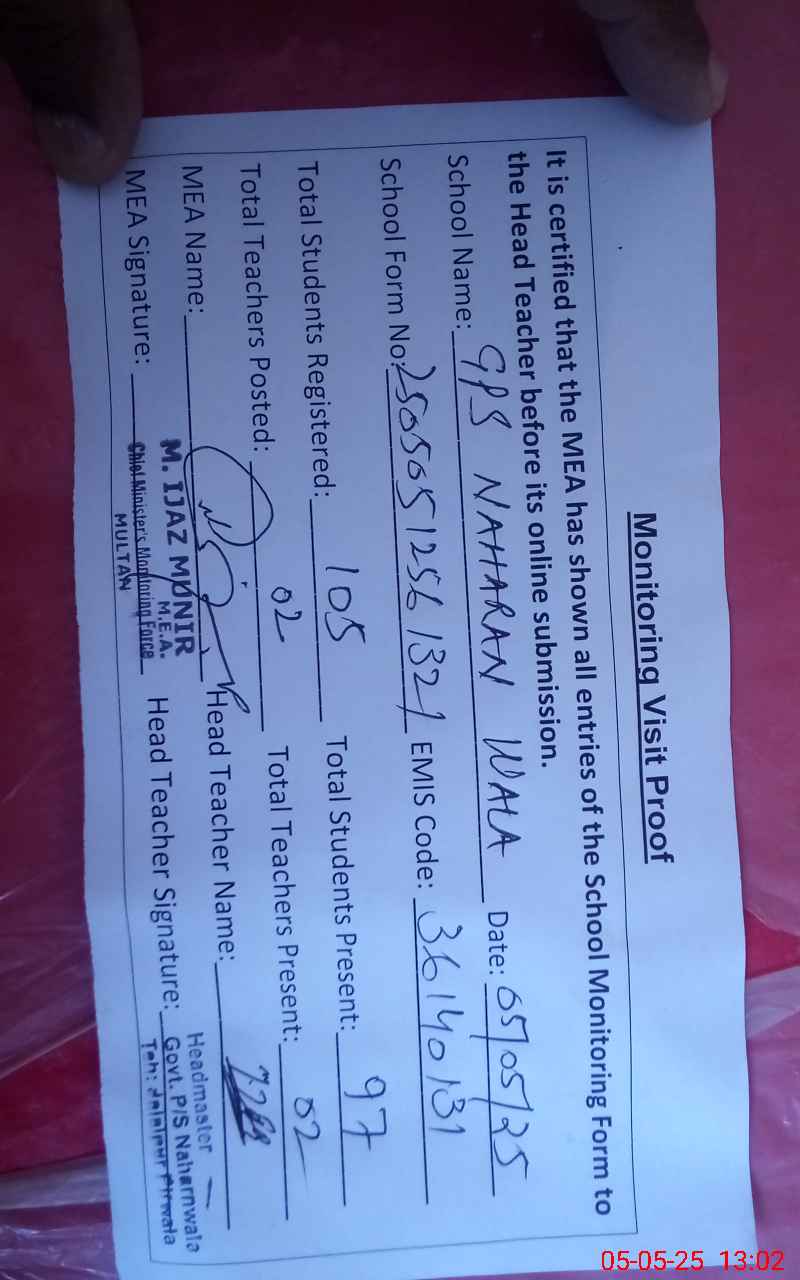 Monitoring Visit Proof
It is certified that the MEA has shown all entries of the School Monitoring Form to
the Head Teacher before its online submission.
School Name: GPS NAHARAN WALA Date: 05/05/25
School Form No: 25050512561321 EMIS Code: 36140131
Total Students Registered: 105 Total Students Present: 97
Total Teachers Posted: 02 Total Teachers Present: 02
MEA Name: Head Teacher Name:
M. IJAZ MUNIR
M.E.A.
MEA Signature: Chief Minister's Monitoring Force Head Teacher Signature:
MULTAN
Headmaster
Govt. P/S Naharnwala
Teh: Jalalpur Pirwala
05-05-25 13:02